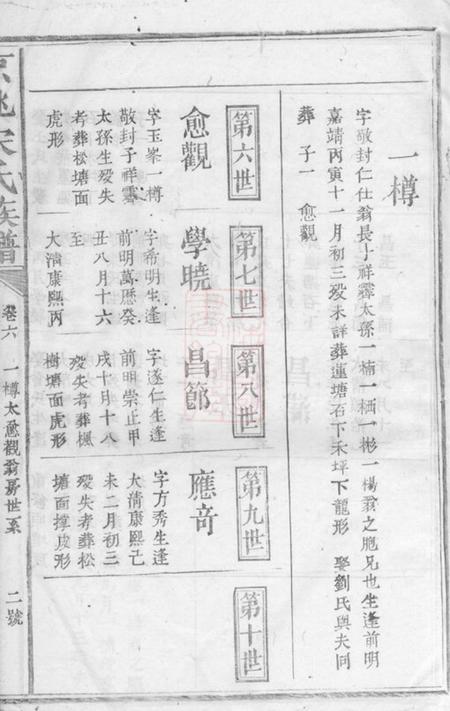 一樽
字敬封仁仕翁長子祥霽太孫一楠一栖一彬一楊翁之胞兄也生逢前明
嘉靖丙寅十一月初三殁未詳葬蓮塘石下禾坪下龍形 娶劉氏與夫同
葬 子一 愈觀
第六世
第七世
第八世
第九世
第十世
愈觀
字玉峯一樽
敬封子祥霽
太孫生殁失
考葬松塘面
虎形
學曉
字希明生逢
前明萬歷癸
丑八月十六
至
大清康熙丙
昌節
字遂仁生逢
前明崇正甲
戌十月十八
殁失考葬楓
樹塘面虎形
應奇
字方秀生逢
大清康熙己
未二月初三
殁失考葬松
塘面撑皮形
京兆宋氏族譜
卷六
一樽太愈觀翁房世系
二號